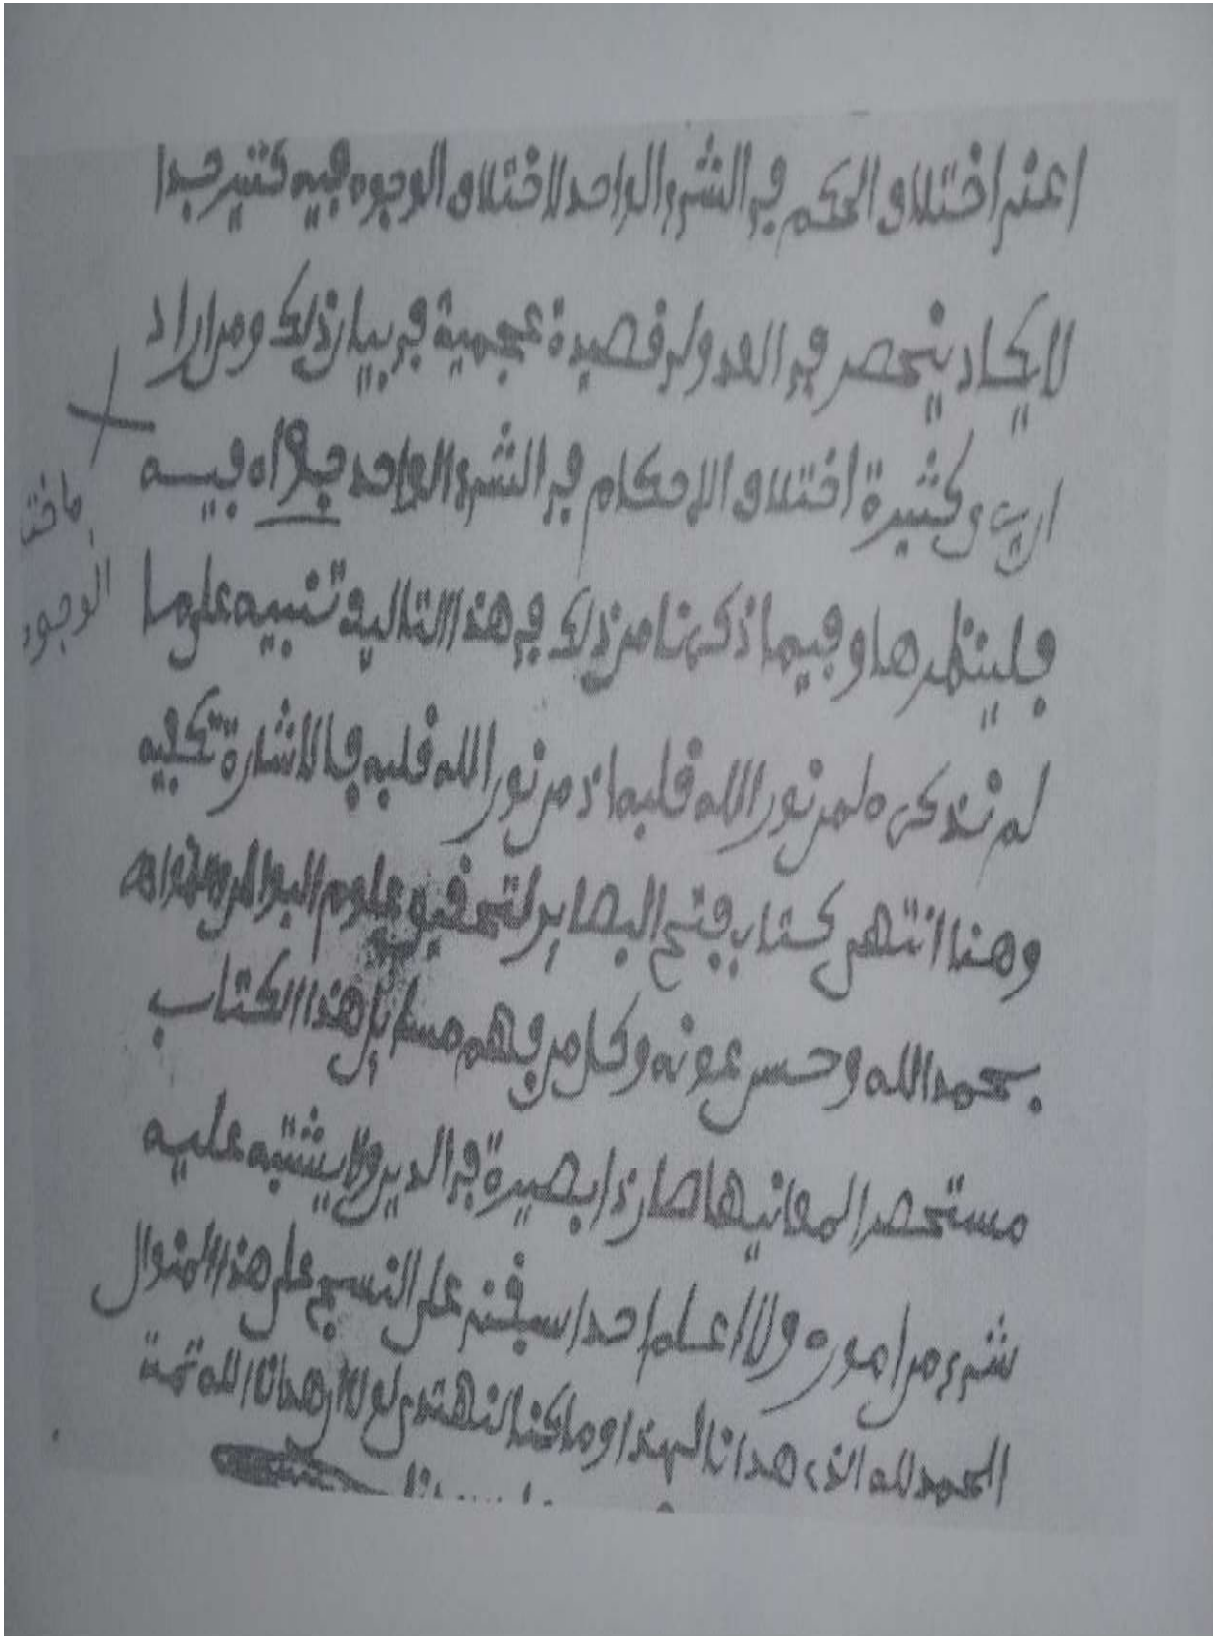 اعني اختلاف الحكم في الشيء الواحد لاختلاف الوجوه فيه كثير جدا
لا يكاد ينحصر في العد ولي قصيدة عجمية في بيان ذلك ومن اراد
ان يرى كثرة اختلاف الاحكام في الشيء الواحد فيه
باخت
الوجوه
فلينظرها وفيما ذكرنا من ذلك في هذا التاليف تنبيه على ما
لم نذكره لمن نور الله قلبه اذ من نور الله قلبه فالاشارة تكفيه
وهنا انتهى كتاب فتح البصاير لتحقيق علوم البواطن والظواهر
بحمد الله وحسن عونه وكل من فهم مسايل هذا الكتاب
مستحضرا لمعانيها صار ذا بصيرة في الدين ولا يشتبه عليه
شيء من اموره ولا اعلم احدا سبقني على النسج على هذا المنوال
الحمد لله الذي هدانا لهذا وما كنا لنهتدي لولا ان هدانا الله تمت